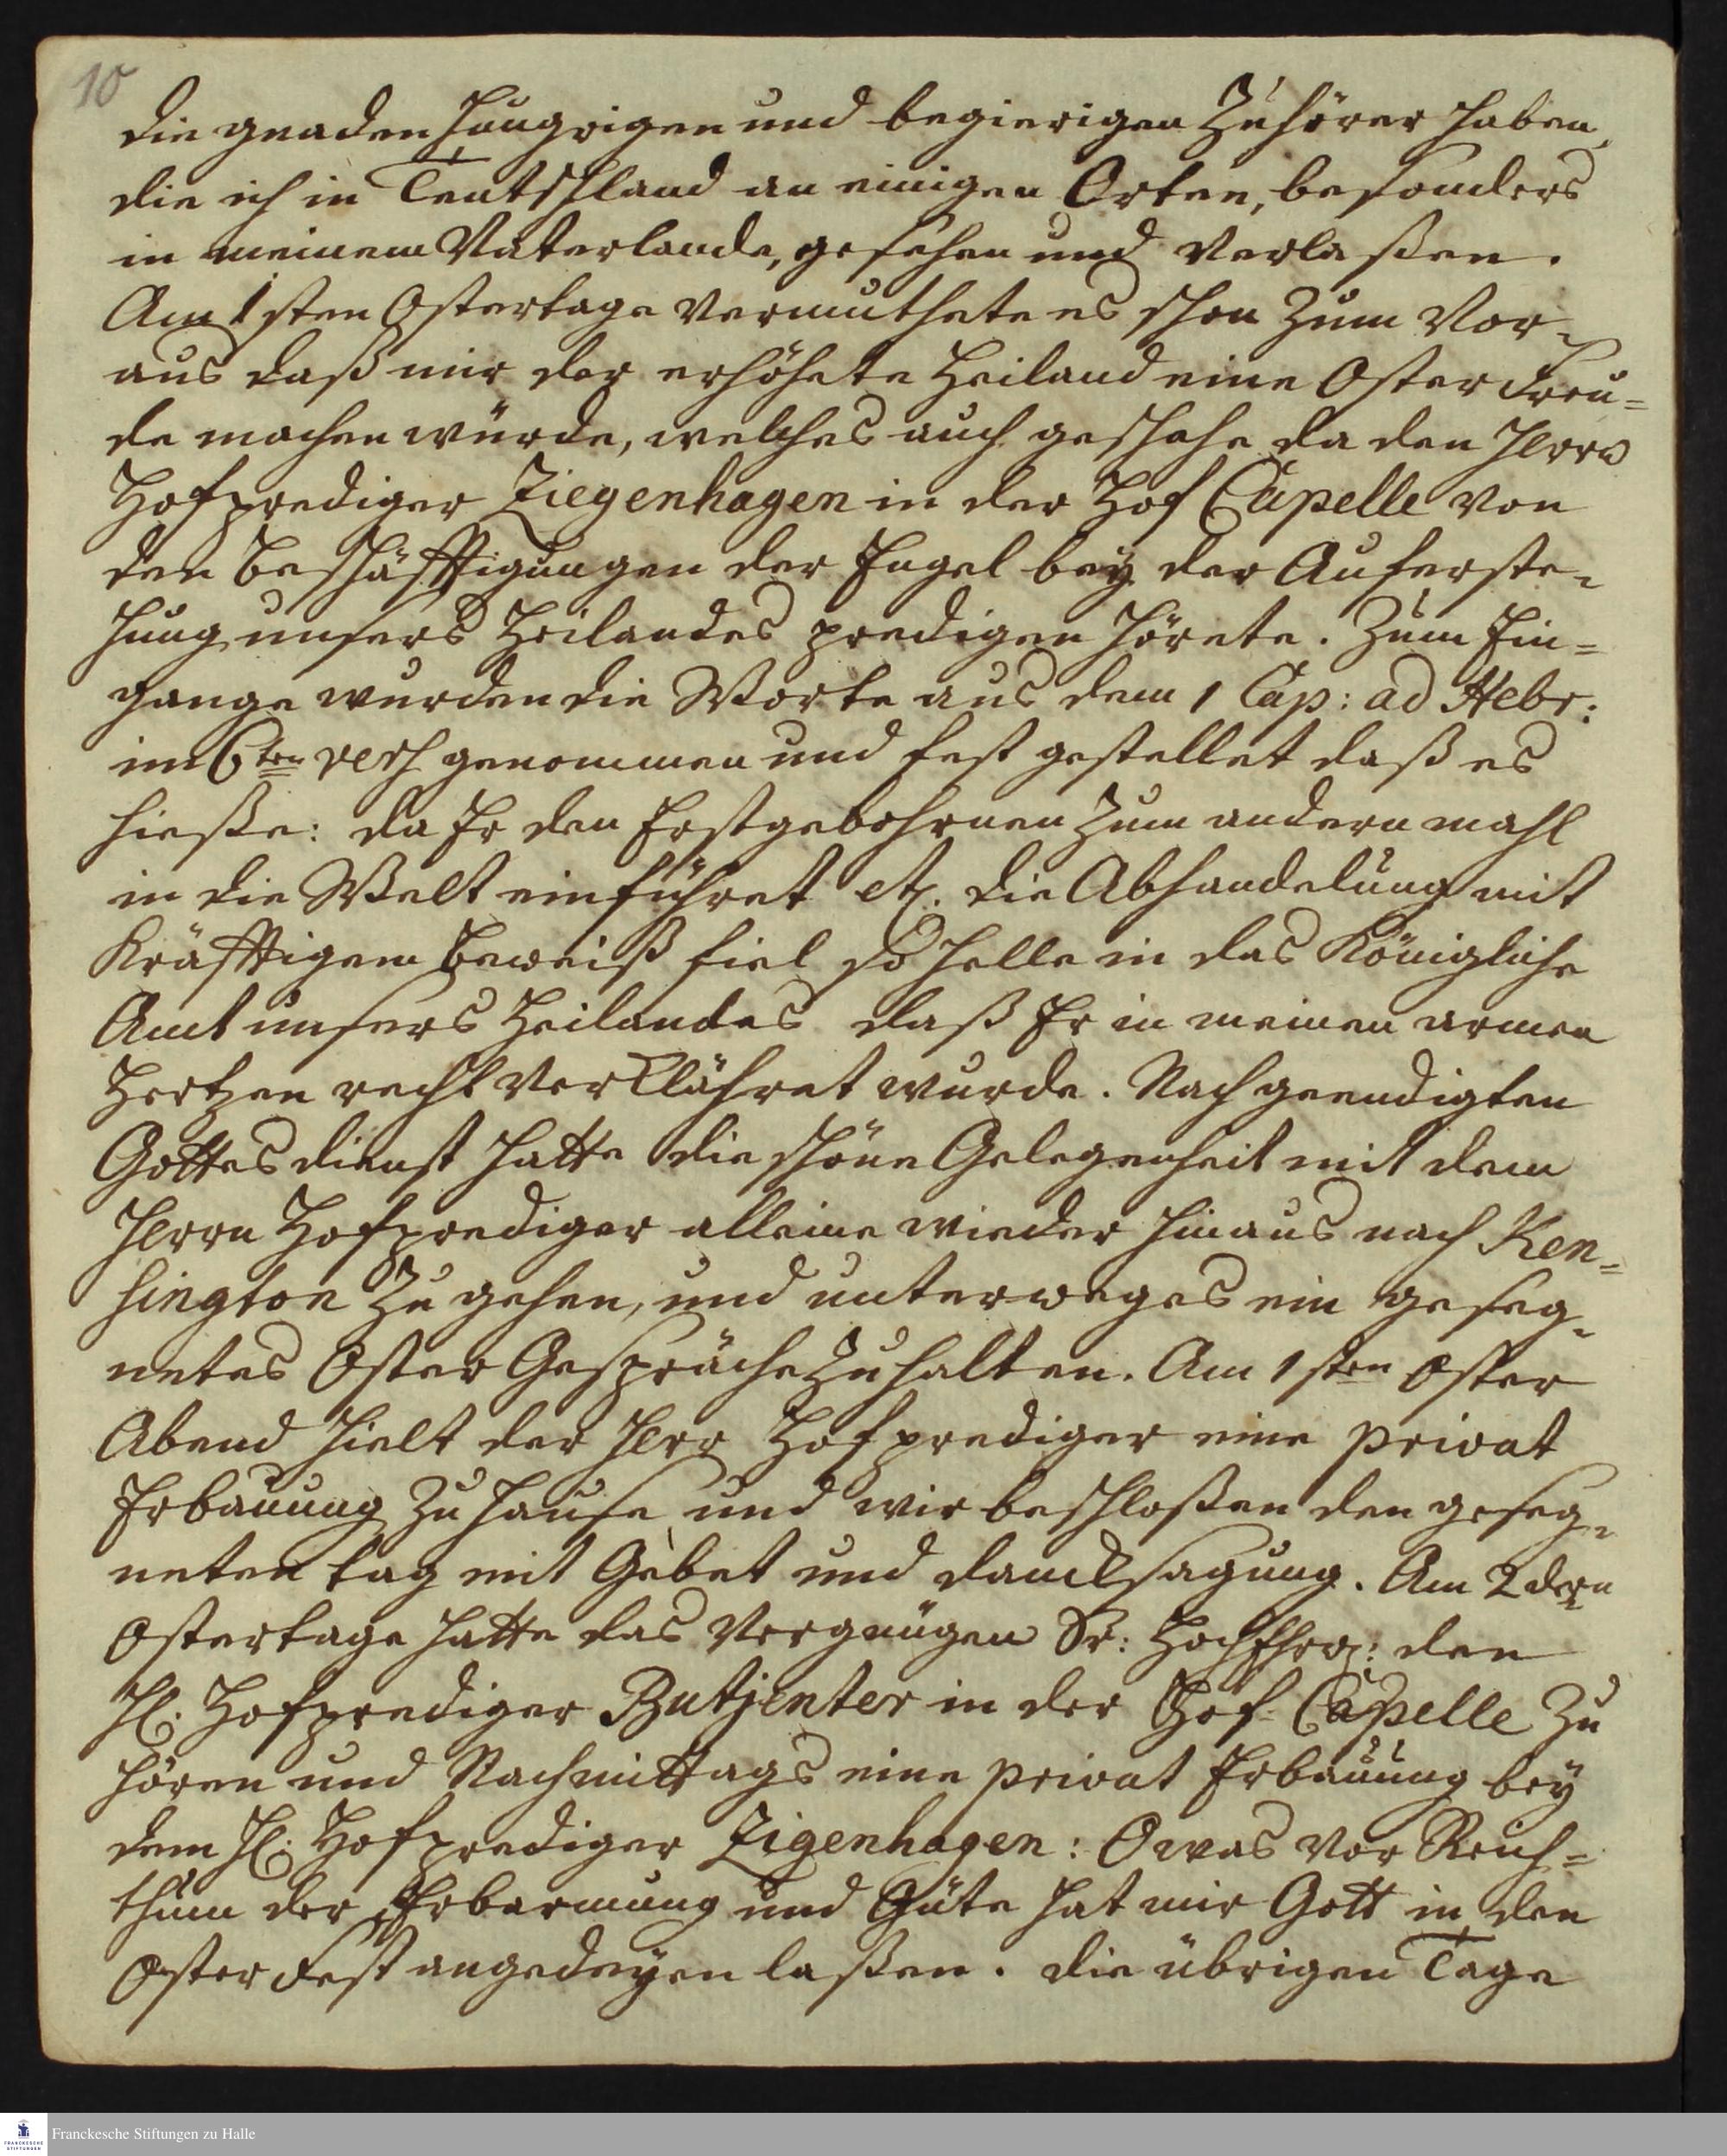 10
die gnaden hungrigen und begierigen Zuhörer haben,
die ich in Teutschland an einigen Orten, besonders
in meinem Vaterlande, gesehen und verlaßen.
Am 1sten Ostertage vermuthete es schon zum Vor-
aus daß mir der erhöhete Heiland eine Oster Freu=
de machen würde, welches auch geschahe da den Herrn
Hofprediger Ziegenhagen in der Hof Capelle von
den Beschäfftigungen der Engel bey der Auferste-
hung unsers Heilandes predigen hörete. Zum Ein=
gange wurden die Worte aus dem 1 Cap: ad Hebr:
im 6ten vers genommen und fest gestellet daß es
hieße: da Er den Erstgebohrnen zum andern mahl
in die Welt einführet etc. die Abhandelung mit
Kräfftigem Beweiß fiel so helle in das Königliche
Amt unsers Heilandes daß Er in meinen armen
Hertzen recht verklähret wurde. Nach geendigten
Gottesdienst hatte die schöne Gelegenheit mit dem
Herrn Hofprediger alleine wieder hinaus nach Ken=
sington zu gehen, und unterweges ein geseg-
netes Oster Gespräche zu halten. Am 1sten Oster
Abend hielt der Herr Hofprediger eine privat
Erbauung zu Hause und wir beschloßen den geseg-
neten tag mit Gebet und dancksagung. Am 2dern
Ostertage hatte das Vergnügen Sr: HochEhrw: den
H. Hofprediger Butjenter in der Hof Capelle zu
hören und Nachmittags eine privat Erbauung bey
dem H. Hofprediger Zigenhagen: O was vor Reich=
thum der Erbarmung und Güte hat mir Gott in den
Oster Fest angedeyen laßen. die übrigen Tage
Franckesche Stiftungen zu Halle